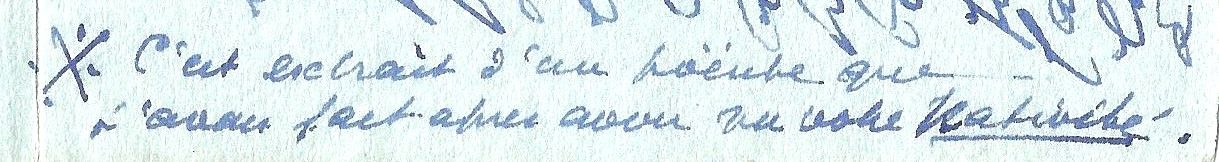 ※ C'est extrait d'un poème que
j'avais fait après avoir vu votre Nativité.